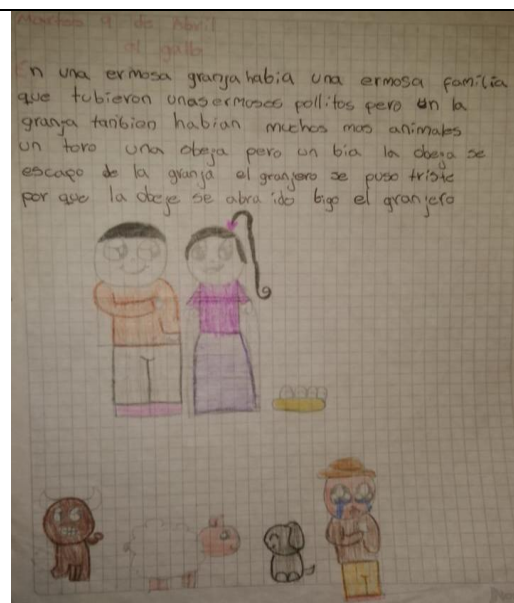 Martes 9 de Abril
el gallo
En una ermosa granja habia una ermosa familia
que tubieron unas ermosos pollitos pero en la
granja tanbien habian muchos mas animales
un toro una obeja pero un bia la obeja se
escapo de la granja el granjero se puso triste
por que la obeje se abra ido bigo el granjero